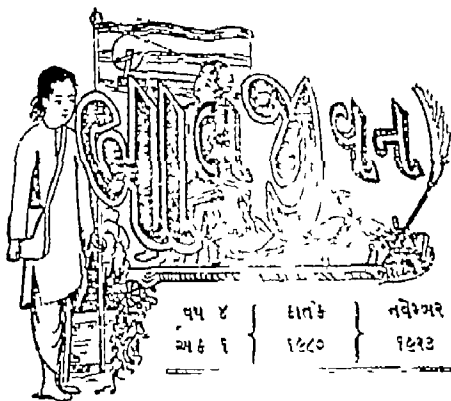 બાલજીવન
વર્ષ ૪ { કાર્તક } નવેમ્બર
અંક ૧ { ૧૯૮૦ } ૧૯૨૩